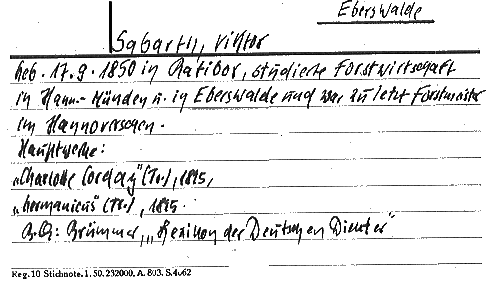 Eberswalde
Sabarth, Viktor
Geb. 17.9.1850 in Ratibor, studierte Forstwirtschaft
in Hann.-Münden u. in Eberswalde und war zuletzt Forstmeister
im Hannoverschen.
Hauptwerke:
„Charlotte Corday" (Tr.), 1875,
„Germanicus" (Tr.), 1875.
Brümmer, „Lexikon der Deutschen Dichter"
Reg. 10 Stichnote. 1. 50. 232000, A. 803. S. 4062